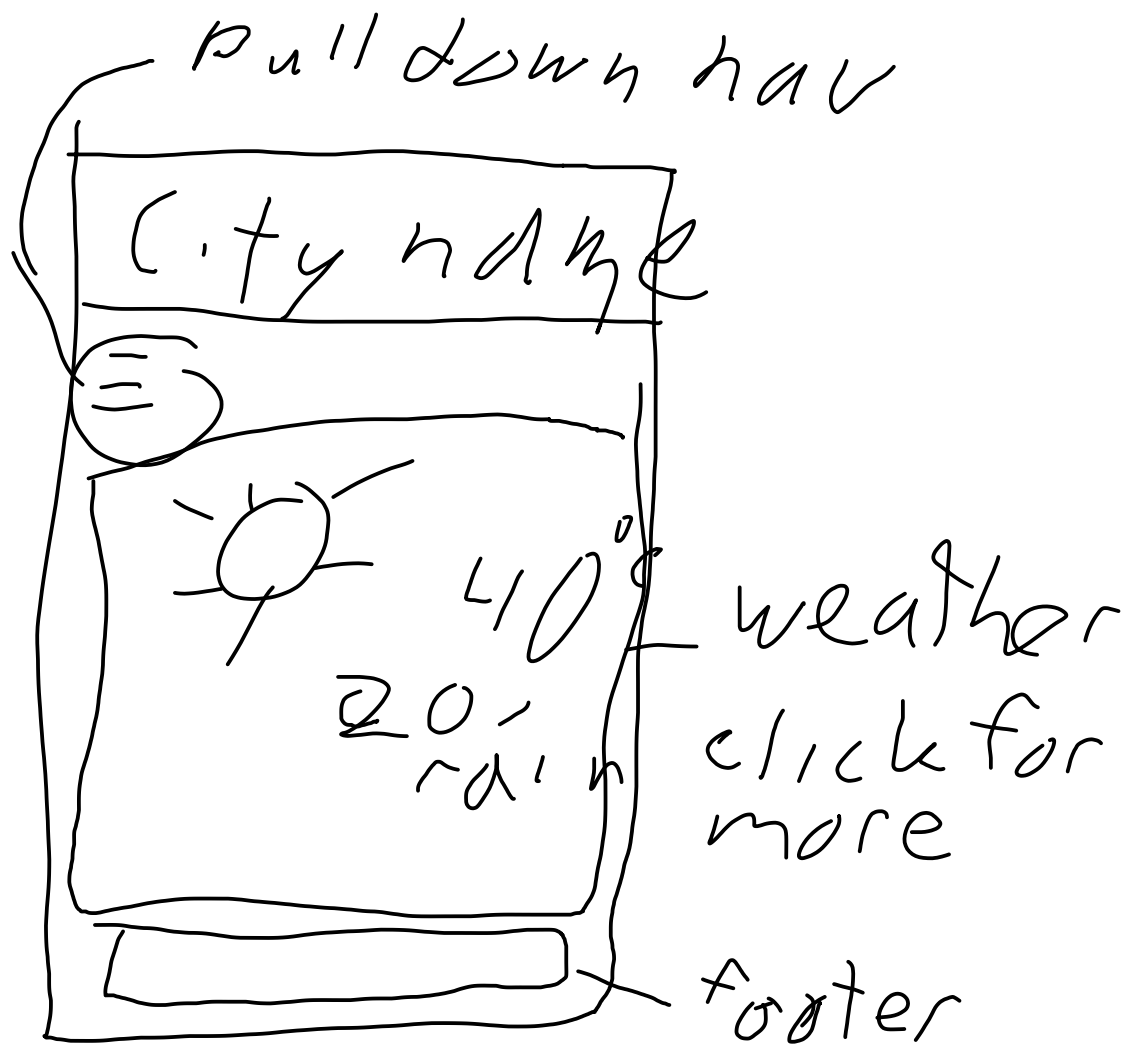 pull down nav
City name
40°c
20%
rain
weather
click for
more
footer